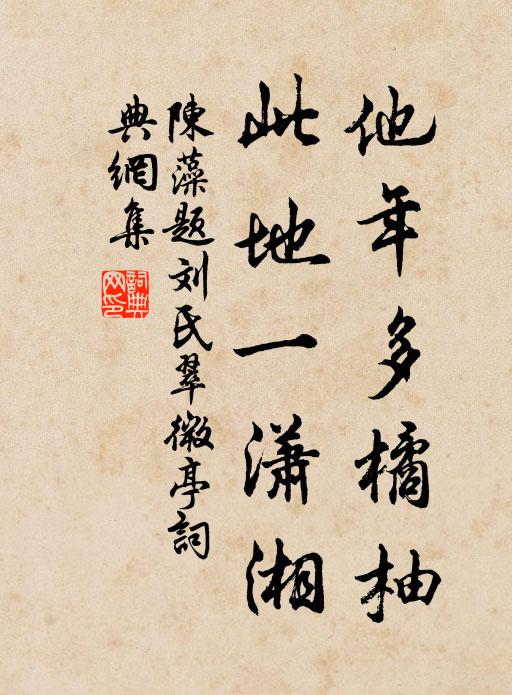 他年多橘柚
此地一潇湘
陳藻題刘氏翠微亭詞
典網集
詞典网印